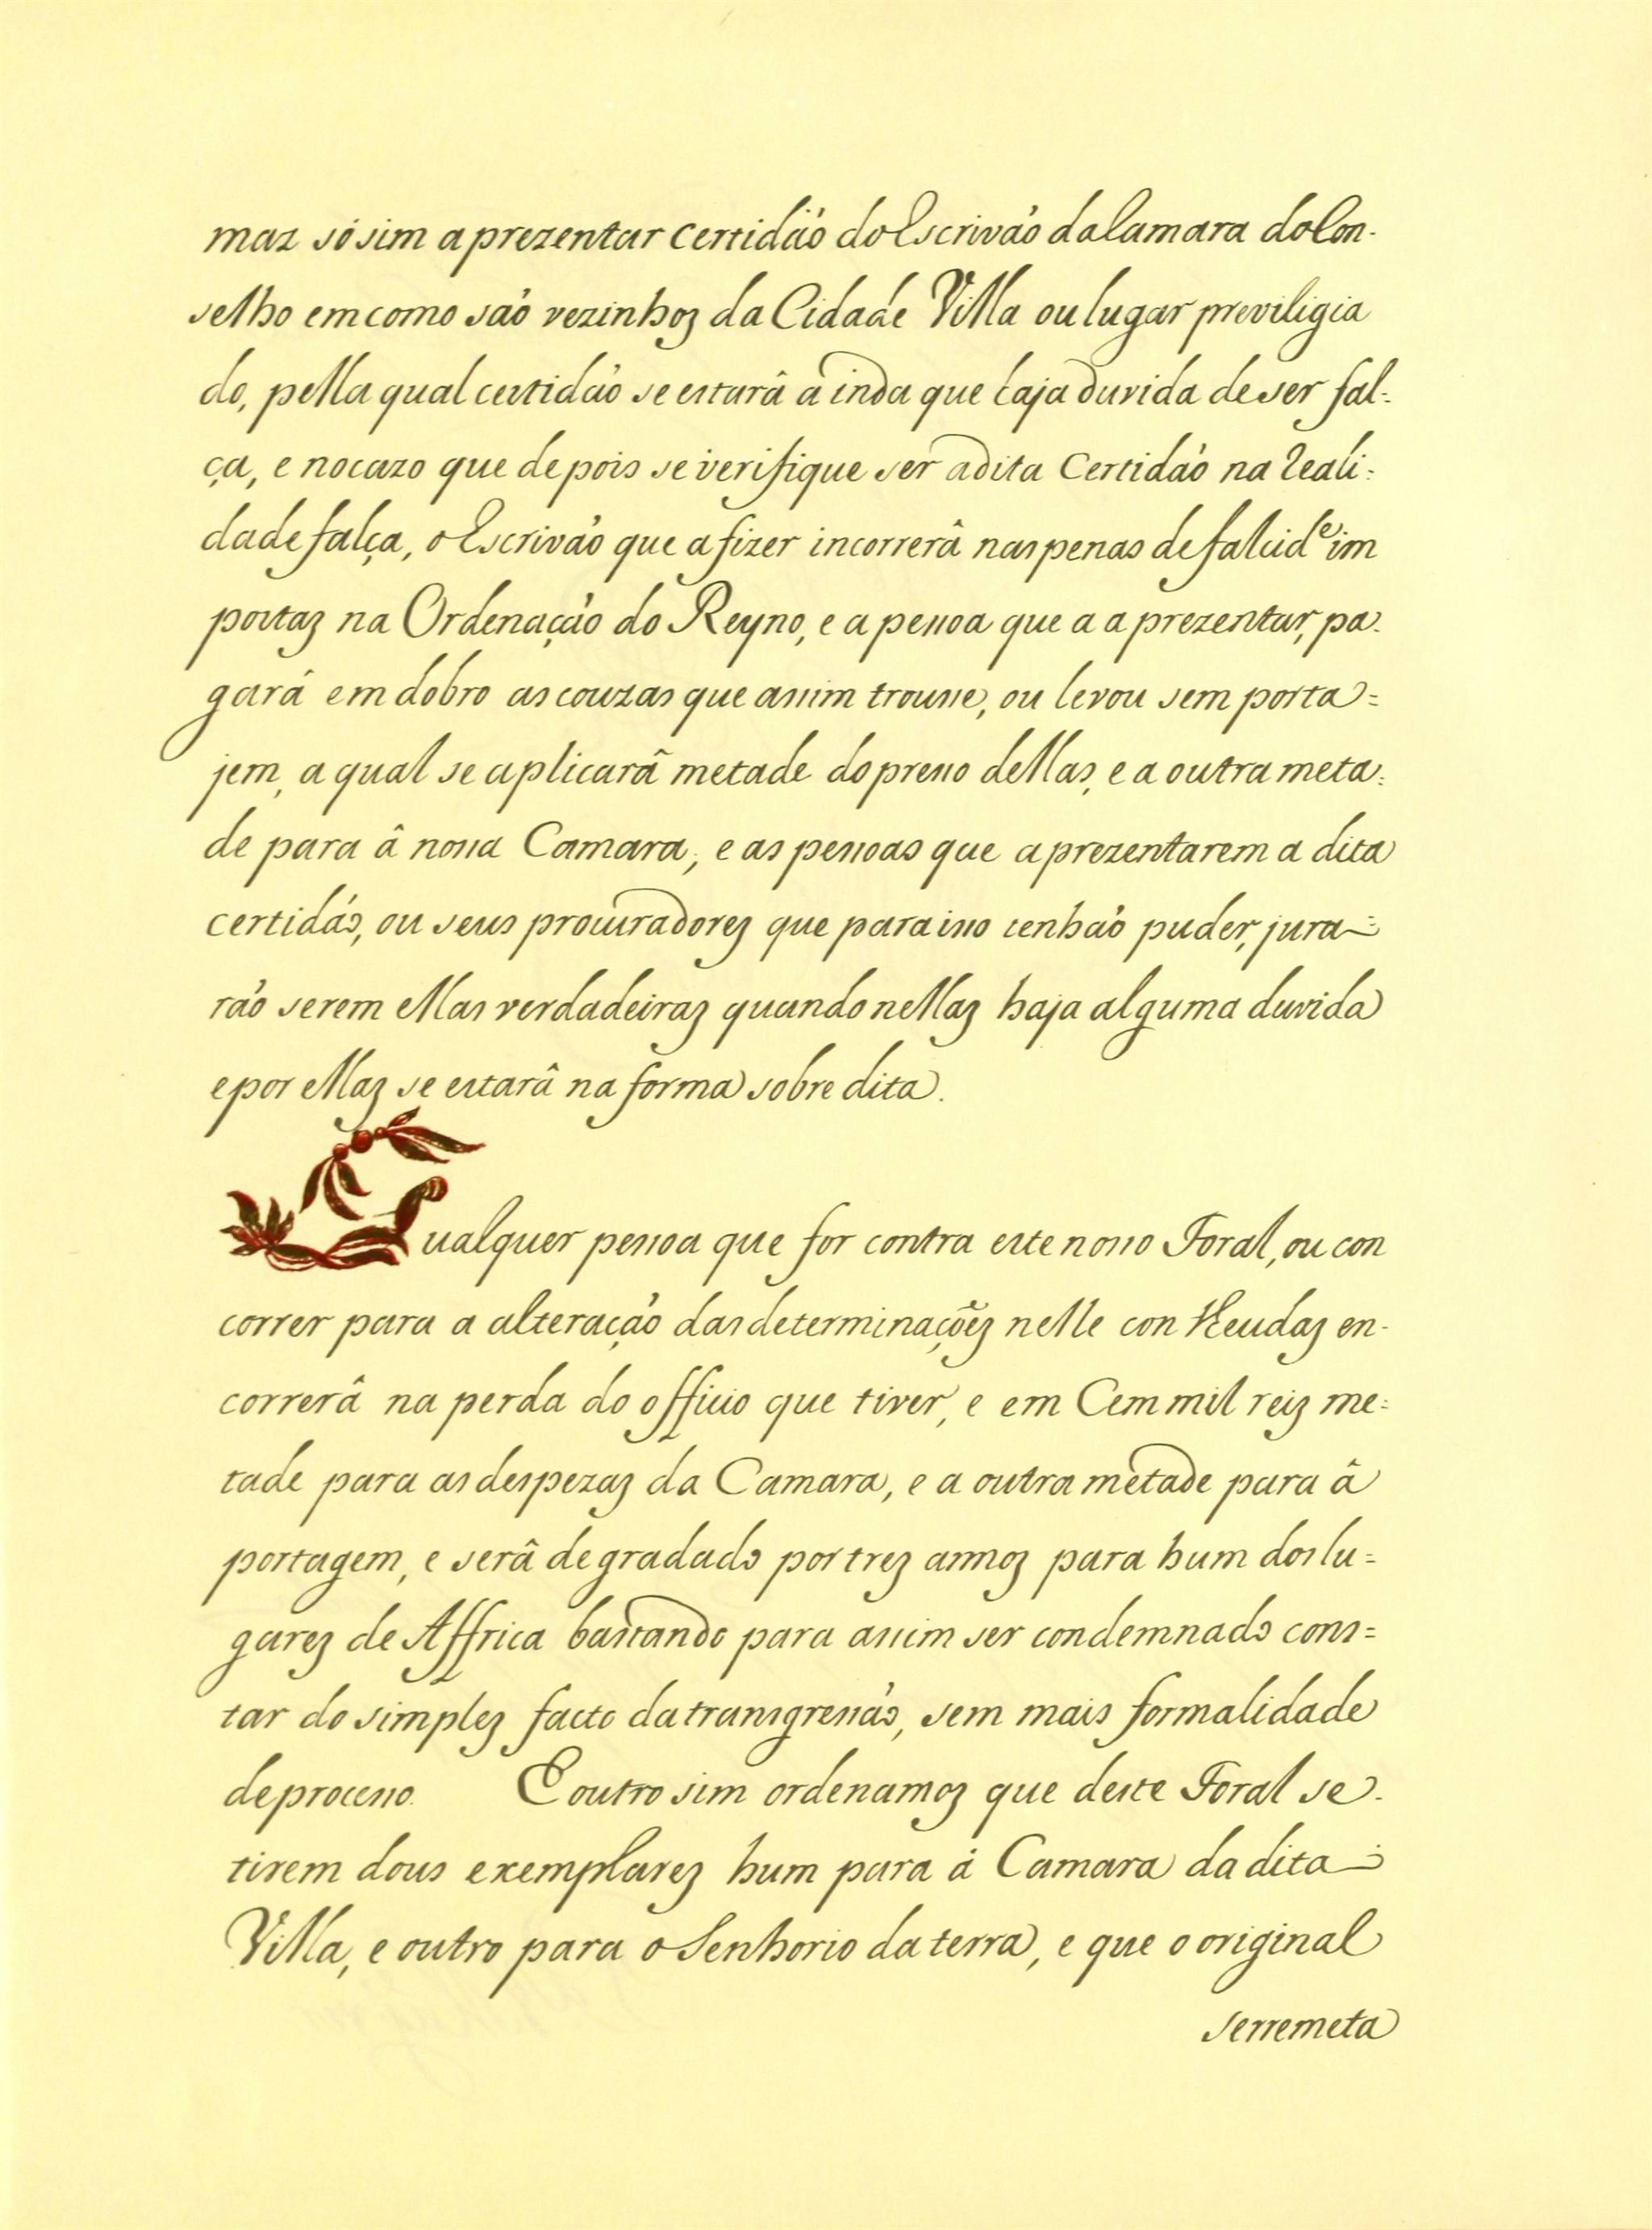 maz sósim aprezentar certidáõ do Escriváo da Camara do Con-
selho em como sáo vezinhoz da Cidade Villa ou lugar previligia
do, pella qual certidáo se estarâ a inda que haja duvida de ser fal-
ça, e nocazo que depois se verifique ser adita Certidáo na Reali-
dade falça, o Escriváo que a fizer incorrerâ nas penas de falcidᵉ im
postaz na Ordenaçáo do Reyno, e a pessoa que a aprezentar, pa-
garâ em dobro as couzas que assim trousse, ou levou sem porta=
jem, a qual se aplicarâ metade do presso dellas, e a outra meta-
de para â nossa Camara, e as pessoas que aprezentarem a dita
certidáo, ou seus procuradorez que para isso tenháo puder, jura=
ráo serem ellas verdadeiraz quando nellaz haja alguma duvida
e por ellaz se estarâ na forma sobre dita.
Qualquer pessoa que for contra este nosso Foral, ou con
correr para a alteraçáo das determinaçõez nelle con theudaz en-
correrâ na perda do officio que tiver, e em Cem mil reiz me-
tade para as despezaz da Camara, e a outra metade para â
portagem, e serâ degradado por trez annoz para hum dos lu=
garez de Affrica bastando para assim ser condemnado cons=
tar do simplez facto da transgressáo, sem mais formalidade
de processo. E outro sim ordenamoz que deste Foral se-
tirem dous exemplarez hum para á Camara da dita
Villa, e outro para o Senhorio da terra, e que o original
serremeta